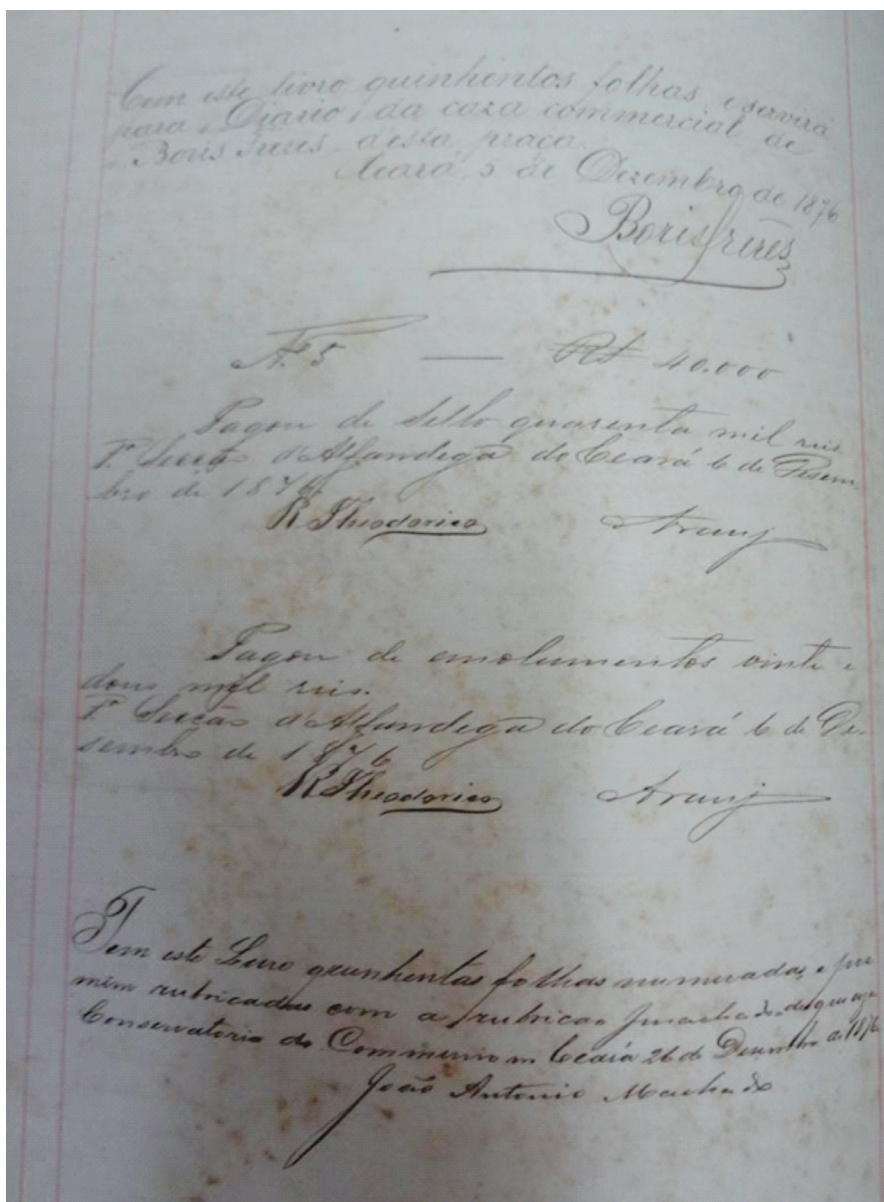 Tem este livro quinhentos folhas, e servirá
para "Diario" da caza commercial de
Boris Frères desta praça.
Ceará, 5 de Dezembro de 1876
Boris Frères
Nº 5 — R$ 40.000
Pagou de sello quarenta mil reis
1ª Secção d'Alfandega do Ceará 6 de Desem
bro de 1876
R Theodorico Arauj
Pagou de emolumentos vinte e
dous mil reis.
1ª Secção d'Alfandega do Ceará 6 de De-
sembro de 1876
R Theodorico Arauj
Tem este Livro quinhentas folhas numeradas, e por
mim rubricadas com a rubrica Jmachado, de que uso
Conservatoria do Commercio no Ceará 26 de Desembro de 1876
João Antonio Machado